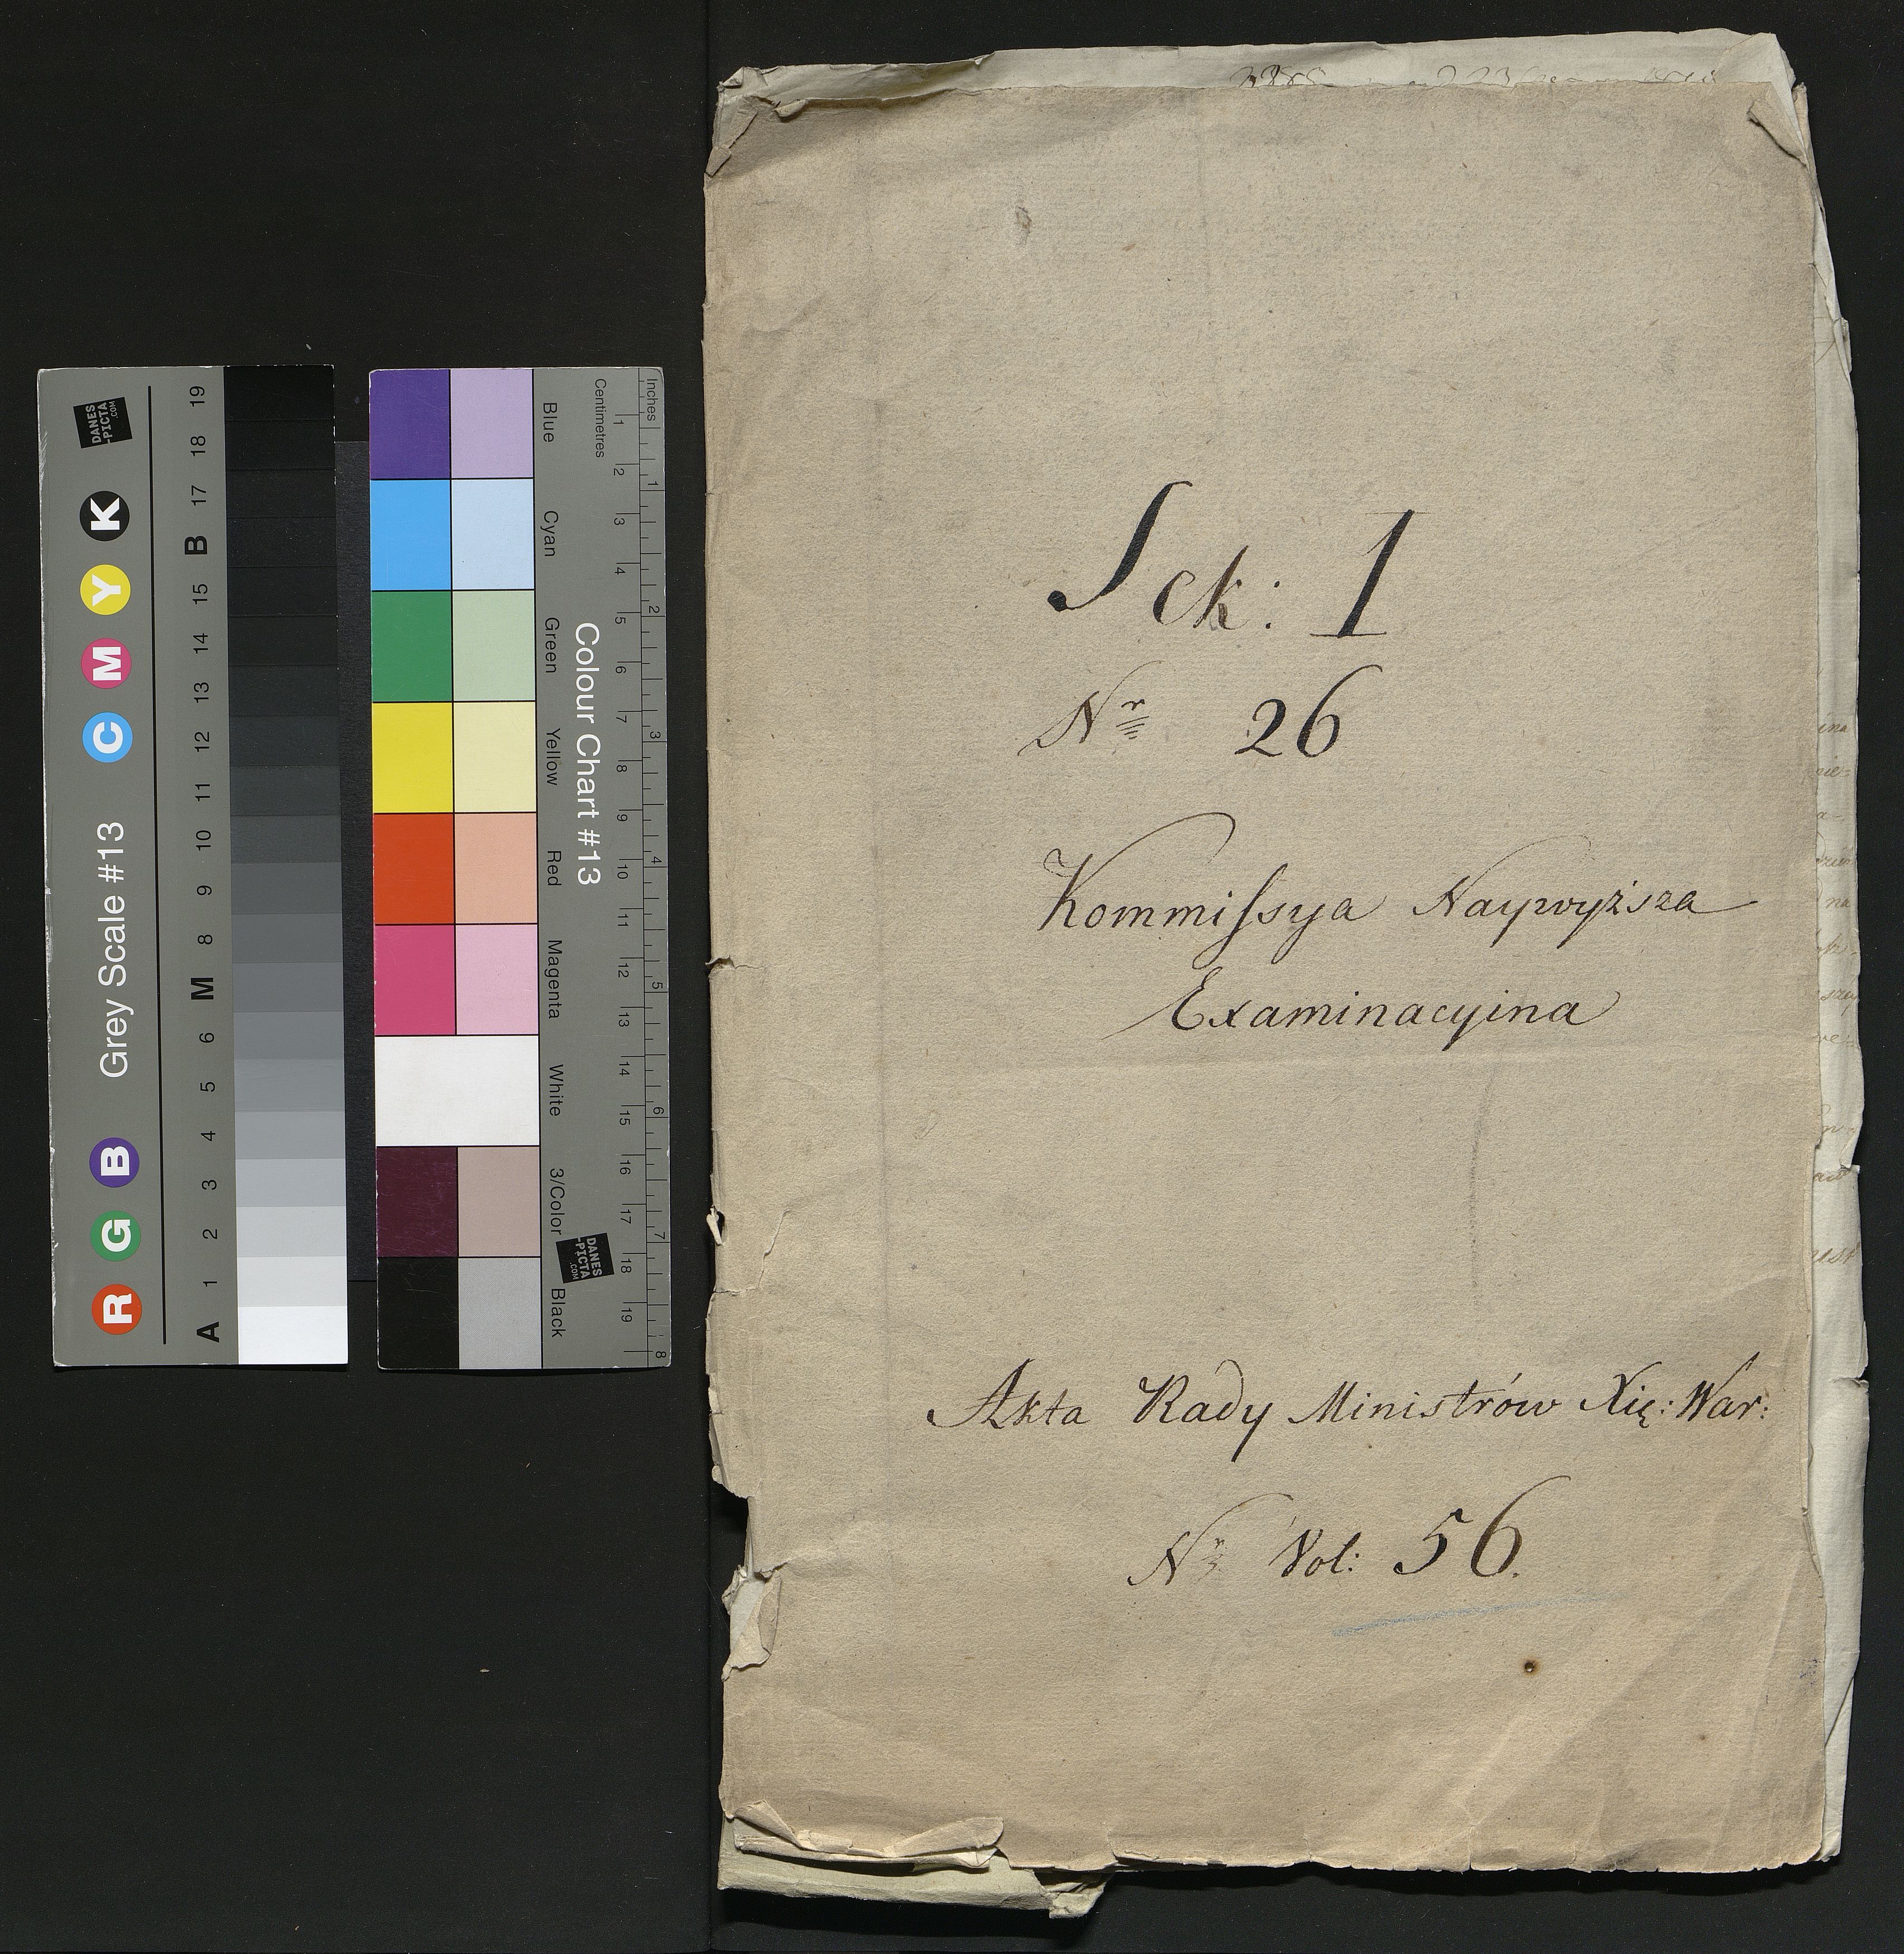 Sck: 1
Nr 26
Kommissya Naywyższa
Examinacyina
Akta Rady Ministrów Xię: War:
Nr Vol: 56.
Grey Scale #13
R G B C M Y K
A 1 2 3 4 5 6 M 8 9 10 11 12 13 14 15 B 17 18 19
DANES
-PICTA
.COM
Colour Chart #13
Blue Cyan Green Yellow Red Magenta White 3/Color Black
Centimetres 1 2 3 4 5 6 7 8 9 10 11 12 13 14 15 16 17 18 19
Inches 1 2 3 4 5 6 7 8
DANES
-PICTA
.COM